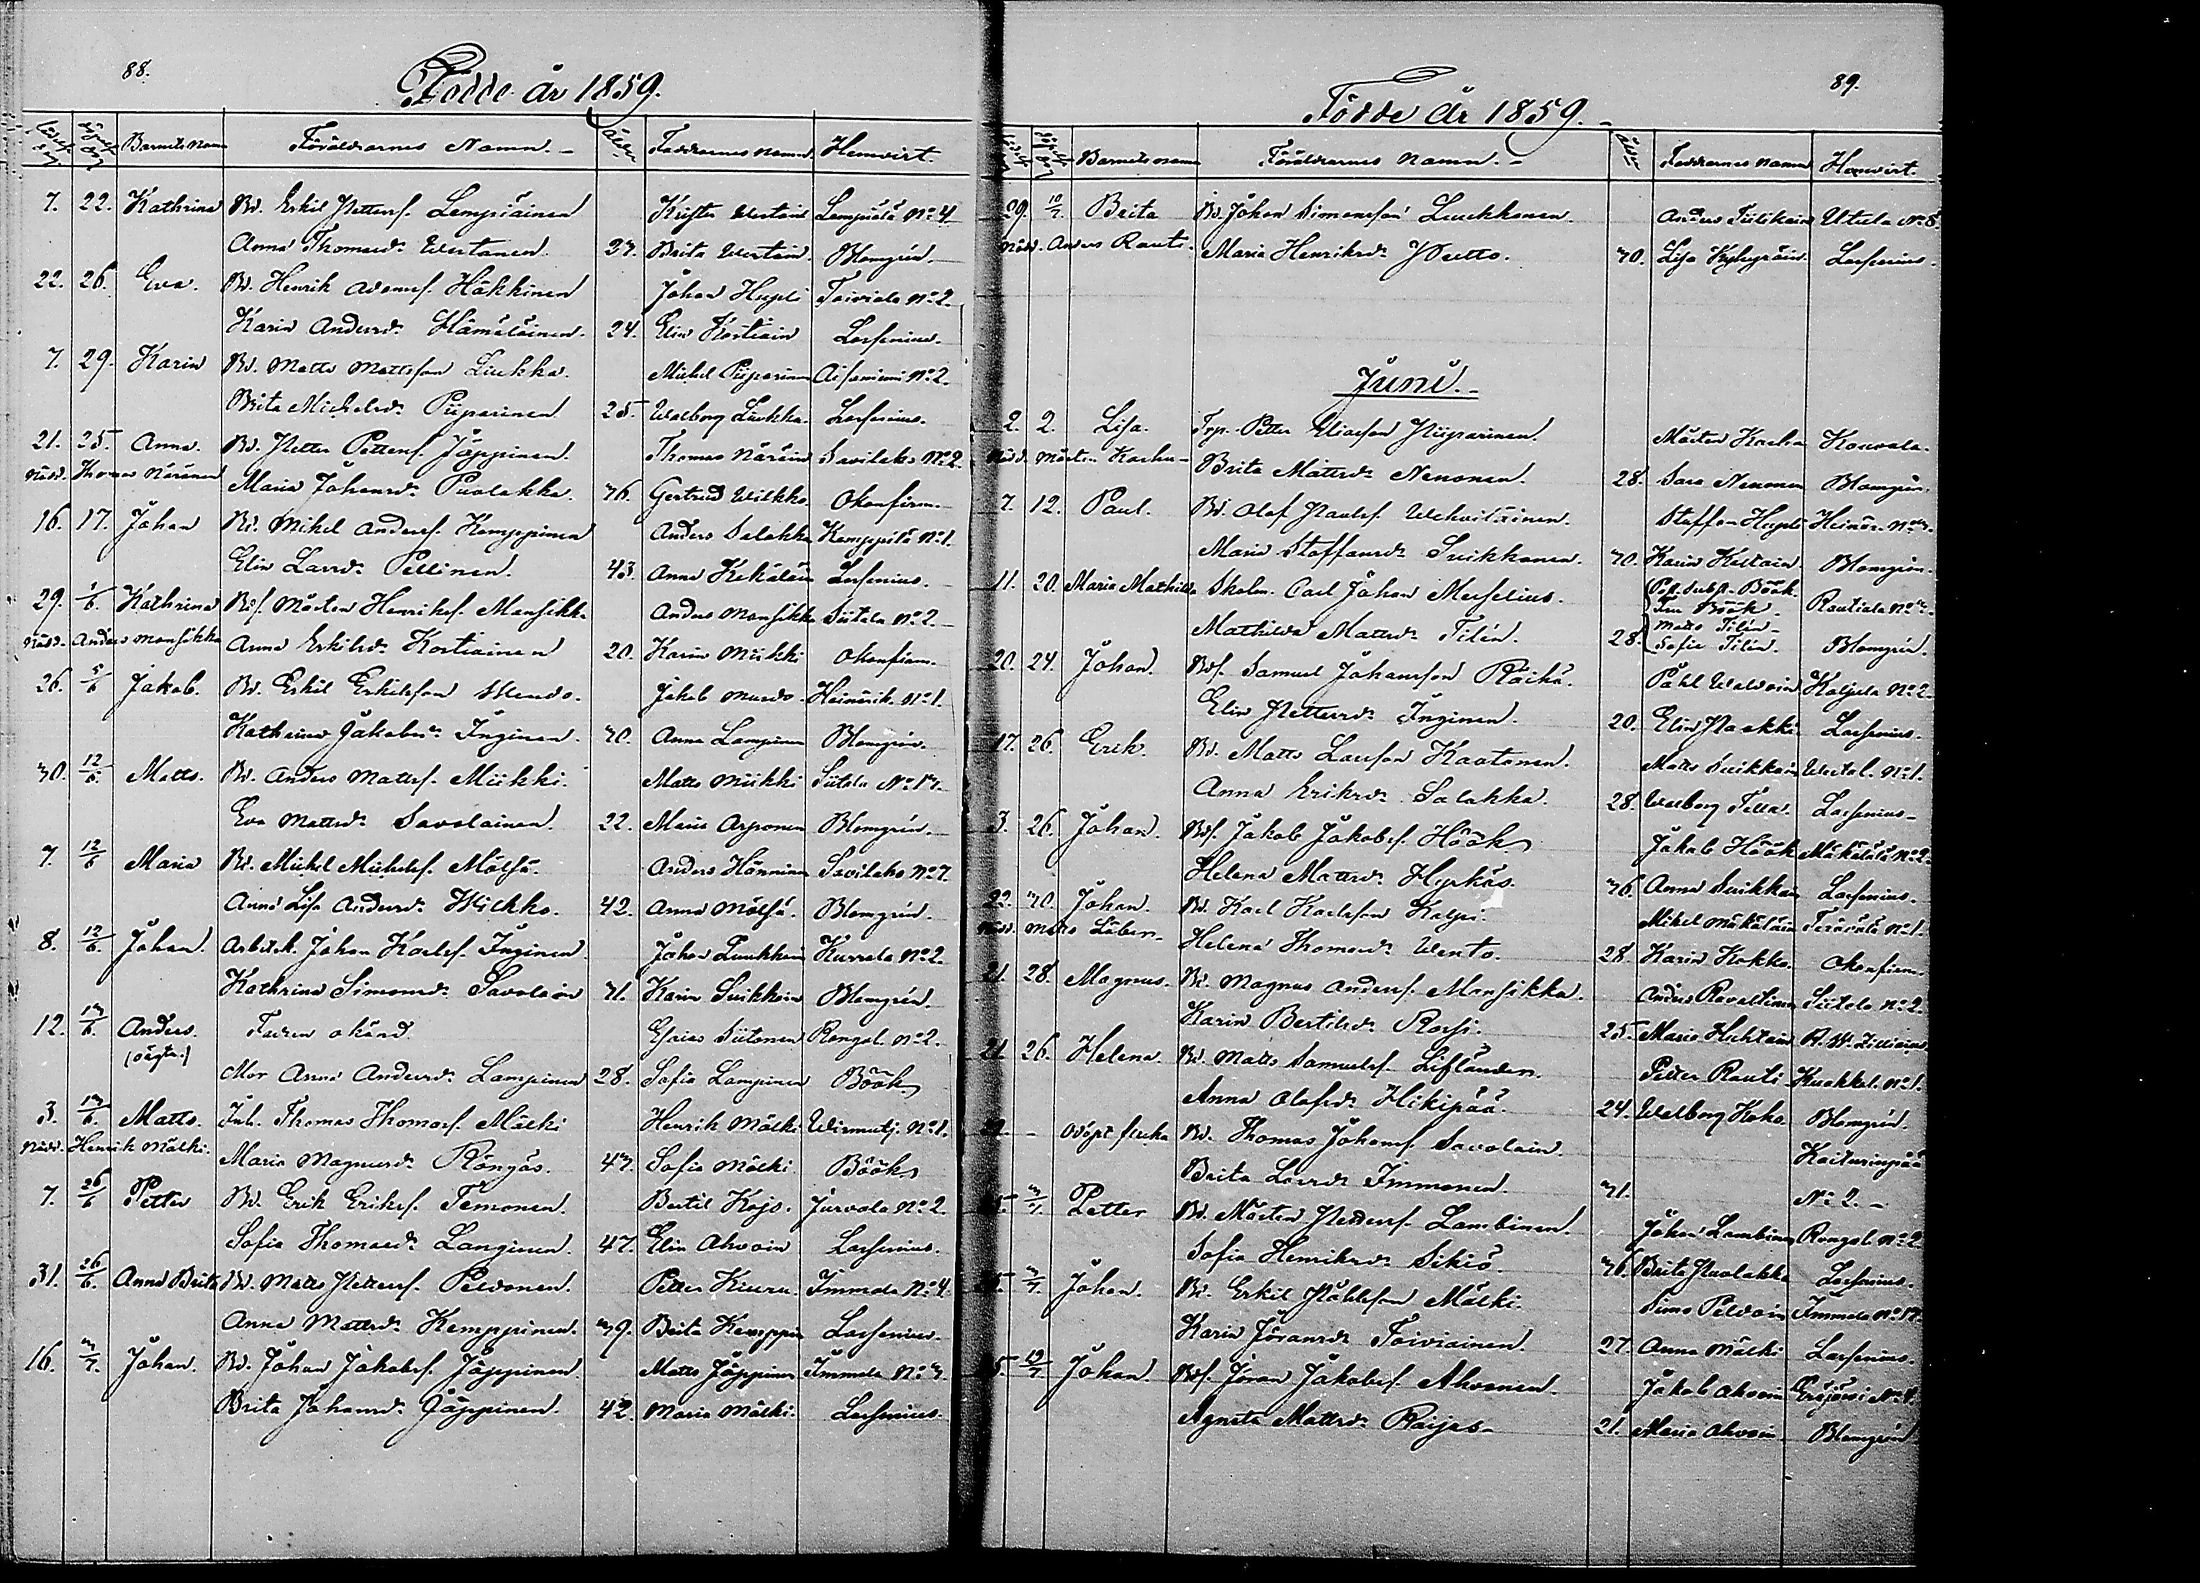 88.
Födde år 1859.
Barnets namn Föräldrarnes Namn. Ålder Faddrarnes namn. Hemvist.
7. 22. Kathrina Bd. Erkil Petterss. Lempiäinen Lempiälä No 4
Anna Thomasdr Wertanen. 23. Brita Blomgrén.
22. 26. Eva. Bd. Henrik Adamsf. Häkkinen Johan Hupli Toiviala No 2.
Karin Andersdr Hämäläinen. 24. Elin Kostiain Lassenius.
7. 29. Karin Bd. Matts Mattsson Liukka. Mickel Piiparinen No 2.
Brita Michelsdr Piiparinen 25. Walborg Liukka. Lassenius.
21. 25. Anna. Bd. Petter Petterss. Jäppinen. Thomas Näräin Savilaks No 2.
Nödd. Thomas Näränen Maria Johansdr Puolakka. 36. Gertrud Wilkko. Okonfirm.
16. 17. Johan Bd. Mikel Andersf. Kemppinen Anders Salakka Kemppilä No 1.
Elin Larsdr Pellinen. 43. Anna Kekäläin Lassenius.
29. 1/6. Kathrina Bdsf. Mårten Henriksf. Mansikka Anders Mansikka Siitola No 2.
Nödd. Anders Mansikka Anna Erkilsdr Kostiainen 20. Karin Miikki Okonfirm.
26. 5/6 Jakob. Bd. Erkil Erkilsson Mendo. Jakob Heinärik. No 1.
Kathrina Jakobsdr Inginen. 30. Anna Lampinen Blomgrén.
30. 12/6 Matts. Bd. Anders Mattsf. Miikki. Matts Miikki Siitola No 13.
Eva Mattsdr Savolainen. 22. Maria Arponen Blomgrén.
7. 12/6 Maria Bd. Michel Michelsf. Mölsä. Anders Hänninen Savilaks No 7.
Anna Lisa Andersdr Wilkko. 42. Anna Mölsä. Blomgrén.
8. 12/6 Johan. Arbetsk. Johan Karlsf. Inginen Johan Luukkain Kurvala No 2.
Kathrina Simonsdr Savolain 31. Karin Suikkain Blomgrén
12. 13/6. Anders. Fadren okänd. Esaias Siitonen Rongol. No 2.
(oägta) Mor Anna Andersdr Lampinen 28. Sofia Lampinen Böök
3. 13/6. Matts. Inh. Thomas Thomasf. Mälki Henrik Mälki Wirmutj. No 1.
Nödd. Henrik Mälki. Maria Magnusdr Röngäs. 43. Sofia Mälki Böök
7. 26/6 Petter Bd. Erik Eriksf. Temonen. Bertil Kojo. Jurvala No 2.
Sofia Thomasdr Langinen. 47. Elin Ahvoin Lassenius.
31. 26/6. Anna Brita Bd. Matts Petterss. Peldonen. Petter Kiuru. Immola No 4.
Anna Mattsdr Kemppinen. 39. Brita Kemppin Lassenius.
16. 3/7. Johan. Bd. Johan Jakobsf. Jäppinen. Matts Jäppinen Immola No 3.
Brita Johansdr Jäppinen. 42. Maria Mälki. Lassenius.
89.
Födde År 1859.
Barnets namn Föräldrarnes namn. Faddrarnes namn Hemvist.
29. 10/7. Brita Bd. Johan Simonsson Luukkonen. Anders Tulikain Utula No 8.
Nödd. Anders Rauti. Maria Henriksdr Putto. 30. Lisa Lassenius.
Juni.
2. 2. Lisa. Trp. Petter Eliasson Piiparinen. Mårten Karhu Kouvola.
Nödd. Mårten Karhu Brita Mattsdr Neuvonen. 28. Sara Neuvonen Blomgrén.
7. 12. Paul. Bd. Olof Paulsf. Wehviläinen. Staffan Hupli
Maria Staffansdr Suikkanen. 30. Karin Blomgrén.
11. 20. Maria Mathilda Skolm. Carl Johan Meselius. Böök. Rautiala No 3.
Fru Böök
Mathilda Mattsdr Tilén. 28. Matts Tilén
Sofia Tilén. Blomgrén.
20. 24. Johan. Bdsf. Samuel Johansson Räihä. Påhl Walvoin Kaljula No 2.
Elin Pettersdr Inginen. 20. Elin Paakki Lassenius.
17. 26. Erik. Bd. Matts Larsson Kaatonen. Matts Suikkain No 1.
Anna Eriksdr Salakka. 28. Walborg Tella. Lassenius.
3. 26. Johan. Bdsf. Jakob Jakobsf. Höök Jakob Höök Mäkälälä No 2.
Helena Mattsdr Hyrkäs. 36. Anna Suikkan Lassenius.
22. 30. Johan. Bd. Karl Karlsson Kalpi. Mikel Mäkäläin Terävälä No 1.
Nödd. Matts Helena Thomasdr Wento. 28. Karin Kokko. Okonfirm.
21. 28. Magnus. Bd. Magnus Andersf. Mansikka. Anders Ravattinen Siitola No 2.
Karin Bertilsdr Rossi. 25. Maria Huhtain
21. 26. Helena. Bd. Matts Samuelsf. Lifländer. Petter Rauti Kuokkol. No 1.
Anna Olofsdr Hikipää. 24. Walborg Koho. Blomgrén.
– Odöpt flicka Bd. Thomas Johansf. Savolain.
Brita Larsdr Immonen. 31. No 2.
3/7. Petter Bd. Mårten Petterss. Lambinen. Johan Lambinen Rongol. No 2.
Sofia Henriksdr Sikiö. 36. Brita Puolakka Lassenius.
3/7. Johan. Bd. Erkil Påhlsson Mälki. Simo Peldoin Immola No 17.
Karin Jöransdr Toiviainen. 27. Anna Mälki Lassenius.
10/7. Johan. Bdsf. Jöran Jakobsf. Ahvonen. Jakob Ahvoin
Agneta Mattsdr Raijas. 21. Maria Ahvoin Blomgrén